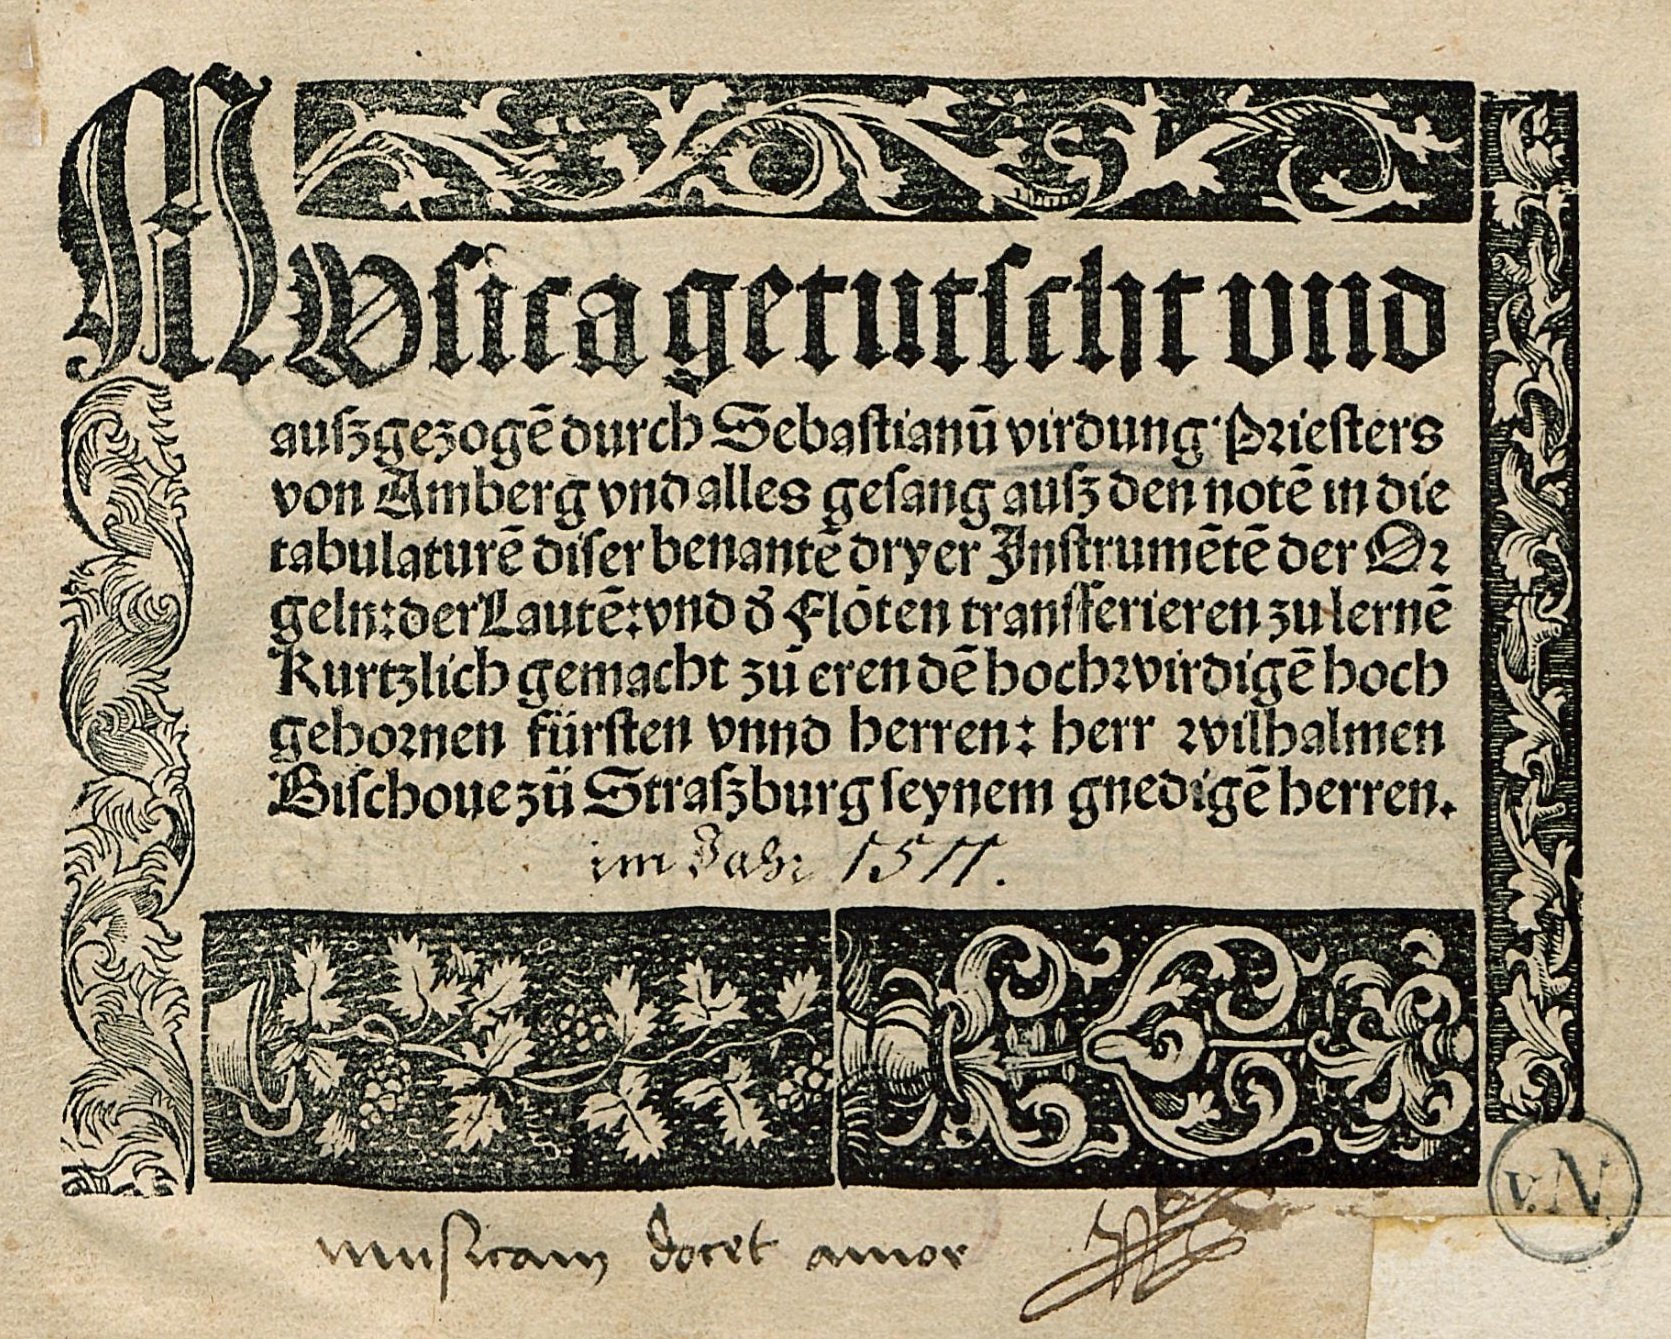 Musica getutscht vnd
auſzgezogē durch Sebaſtianū virdung Prieſters
von Amberg vnd alles geſang auſz den notē in die
tabulaturē diſer benantē dryer Inſtrumētē der Or
geln: der Lautē: vnd d̄ Flöten tranſferieren zu lernē
Kurtzlich gemacht zū eren dē hochwirdigē hoch
gebornen fürſten vnnd herren: herr wilhalmen
Biſchoue zů Straſzburg ſeynem gnedigē herren.
im Jahr 1511.
musicam docet amor
v.N